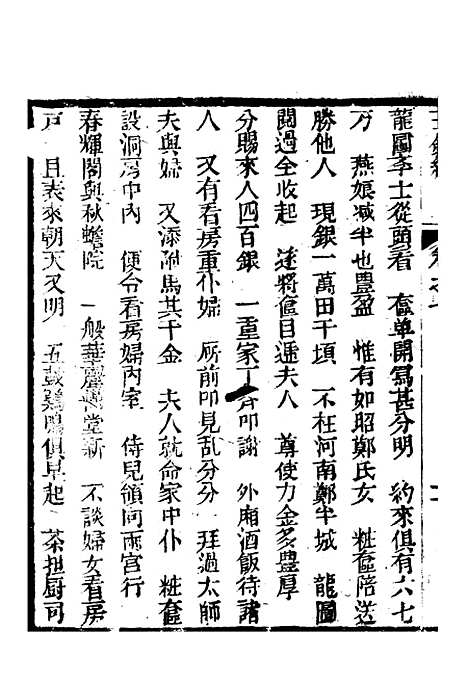 龍圖李士從頭看　奩单開寫甚分明　約來俱有六七
万　燕娘减半也豊盈　惟有如昭鄭氏女　粧奩陪送
勝他人　現銀一萬田千頃　不枉河南鄭半城　龍圖
閱過全收起　遂將奩目逓夫人　尊使力金多豊厚
分賜來人四百銀　一重家丁齊叩謝　外厢酒飯待諸
人　又有看房重仆婦　厛前叩見乱分分　拜過太師
夫與婦　又添附馬其千金　夫人就命家中仆　粧奩
設洞房中內　便令看房婦內室　侍児領向兩宫行
春輝閣與秋蟾院　一般華麗㒷堂新　不談婦女看房
戸　且表來朝天又明　五鼓鷄鳴俱早起　茶担厨司